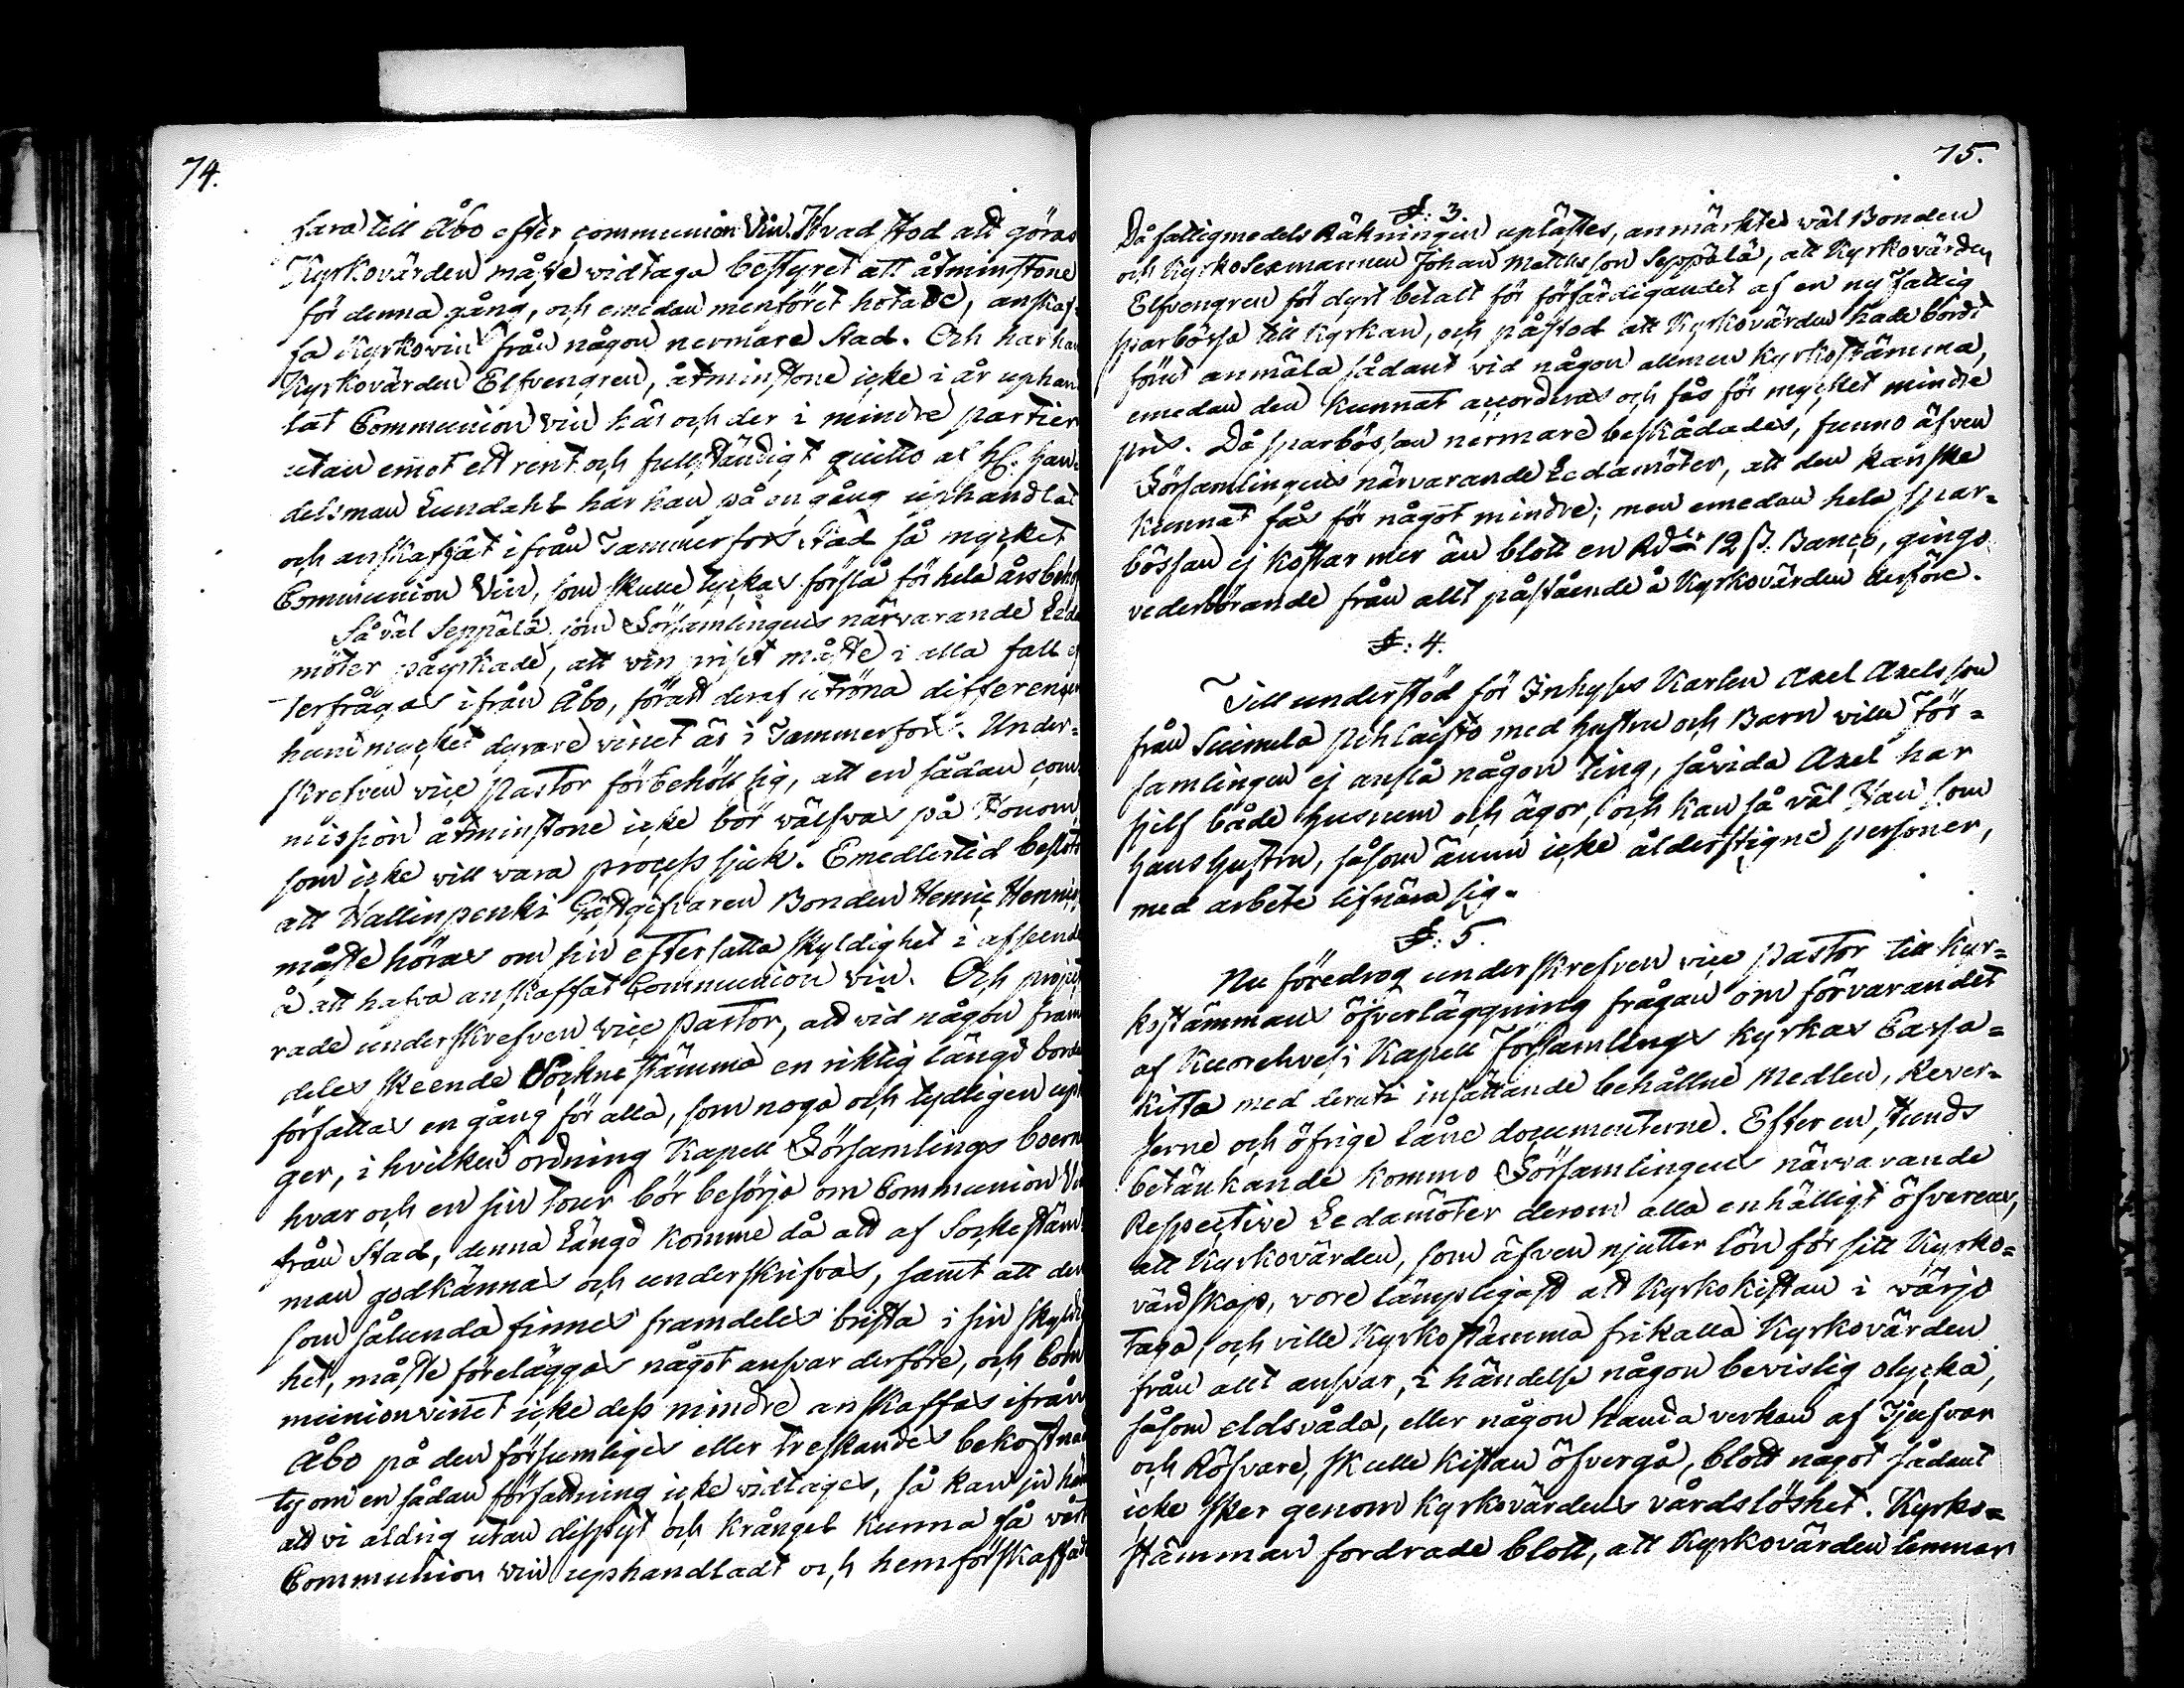 74.
fara till Åbo efter communion Vin. Hvad stod att göras
Kyrkovärden måste widtaga bestyret att åtminstone
för denna gång, och emedan menföret hotade, anskaf-
fa Kyrkovin från någon nermare Stad. Och har han
Kyrkovärden Elfvengren, åtminstone icke i år uphan
lat Communion vin här och der i mindre partier
utan emot ett rent och fullständigt quitto af H: Han-
delsman Lundahl har han på en gång uphandlat
och anskaffat ifrån Tammerfors Stad så mycket
Communion Vin, som skulle tyckas förslå för hela års beho
Så väl Seppälä som Församlingens närvarande Leda
möter påyrkade, att vin priset måste i alla fall ef
terfrågas ifrån Åbo, föratt deraf utröna differensen
huru mycket dyrare vinet är i Tammerfors. Under-
skrefven vice Pastor förbehöll sig, att en sådan com-
mission åtminstone icke bör wälfvas på Honom,
som icke vill vara process sjuk. Emedlertid beslöts
att Wallinpenki Gästgifvaren Bonden Henric Henrics
måste höras om sin eftersatta skyldighet i afseende
å att hafva anskaffat Communion vin. Och projec
rade underskrefven vice Pastor, att vid någon fram
deles skeende Sockne stämma en riktig längd borde
författas en gång för alla, som noga och tydligen up
ger, i hvilken ordning Kapell Församlings boerne
hvar och en sin tour bör besörja om Communion Vin
från Stad, denna Längd komme då att af Sockestäm
man godkännas och underskrifvas, samt att den
som sålunda finnes framdeles brista i sin skyldig
het, måste föreläggas något ansvar derföre, och Com
munionvinet icke dess mindre anskaffas ifrån
Åbo på den försumliges eller treskandes bekostnad
ty om en sådan författning icke widtages, så kan ju hä
att vi aldrig utan disput och krångel kunna få vårt
Communion vin uphandladt och hemförskaffadt
75.
§: 3.
Då fattigmedels Räkningen uplästes, anmärkte väl Bonden
och Kyrko Sexmannen Johan Mattsson Seppälä, att Kyrkovärden
Elfvengren för dyrt betalt för förfärdigandet af en ny fattig
sparbössa till Kyrkan, och påstod att Kyrkovärden hade bordt
förut anmäla sådant vid någon allmen Kyrkostämma,
emedan den kunnat accorderas och fås för mycket mindre
pris. Då sparbössan nermare beskådades, funno äfven
Församlingens närvarande Ledamöter, att den kanske
kunnat fås för något mindre; men emedan hela spar-
bössan ej kostar mer än blott en Rdr 12 s. Banco, gingo
vederbörande från allt påstående å Kyrkovärden derföre.
§: 4.
Till understöd för Inhyses Karlen Axel Axelsson
från Suinula Pihlaisto med Hustru och Barn wille För-
samlingen ej anslå någon ting, såvida Axel har
sjelf både husrum och ägor, och kan så väl Han som
Hans Hustru, såsom ännu icke ålderstigne personer,
med arbete lifnära sig.
§: 5.
Nu föredrog underskrefven vice Pastor till Kyr-
kostämmans öfverläggning frågan om förvarandet
af Kuorehvesi Kapell Församlings Kyrkas Cassa-
Kista med deruti insättande behållne Medlen, Rever-
serne och öfrige låne documenterne. Efter en stunds
betänkande kommo Församlingens närvarande
Respective Ledamöter derom alla enhälligt öfverens,
att Kyrkovärden, som äfven njutter lön för sitt Kyrko-
värdskap, vore lämpligast att Kyrkokistan i wärjo
taga, och ville Kyrkostämma frikalla Kyrkovärden
från allt ansvar, i händelse någon bevislig olycka,
såsom eldsvåda, eller någon handa verkan af Tjufvar
och Röfvare, skulle Kistan öfvergå, blott något sådant
icke sker genom Kyrkovärdens vårdslöshet. Kyrko-
stämman fordrade blott, att Kyrkovärden lemnar